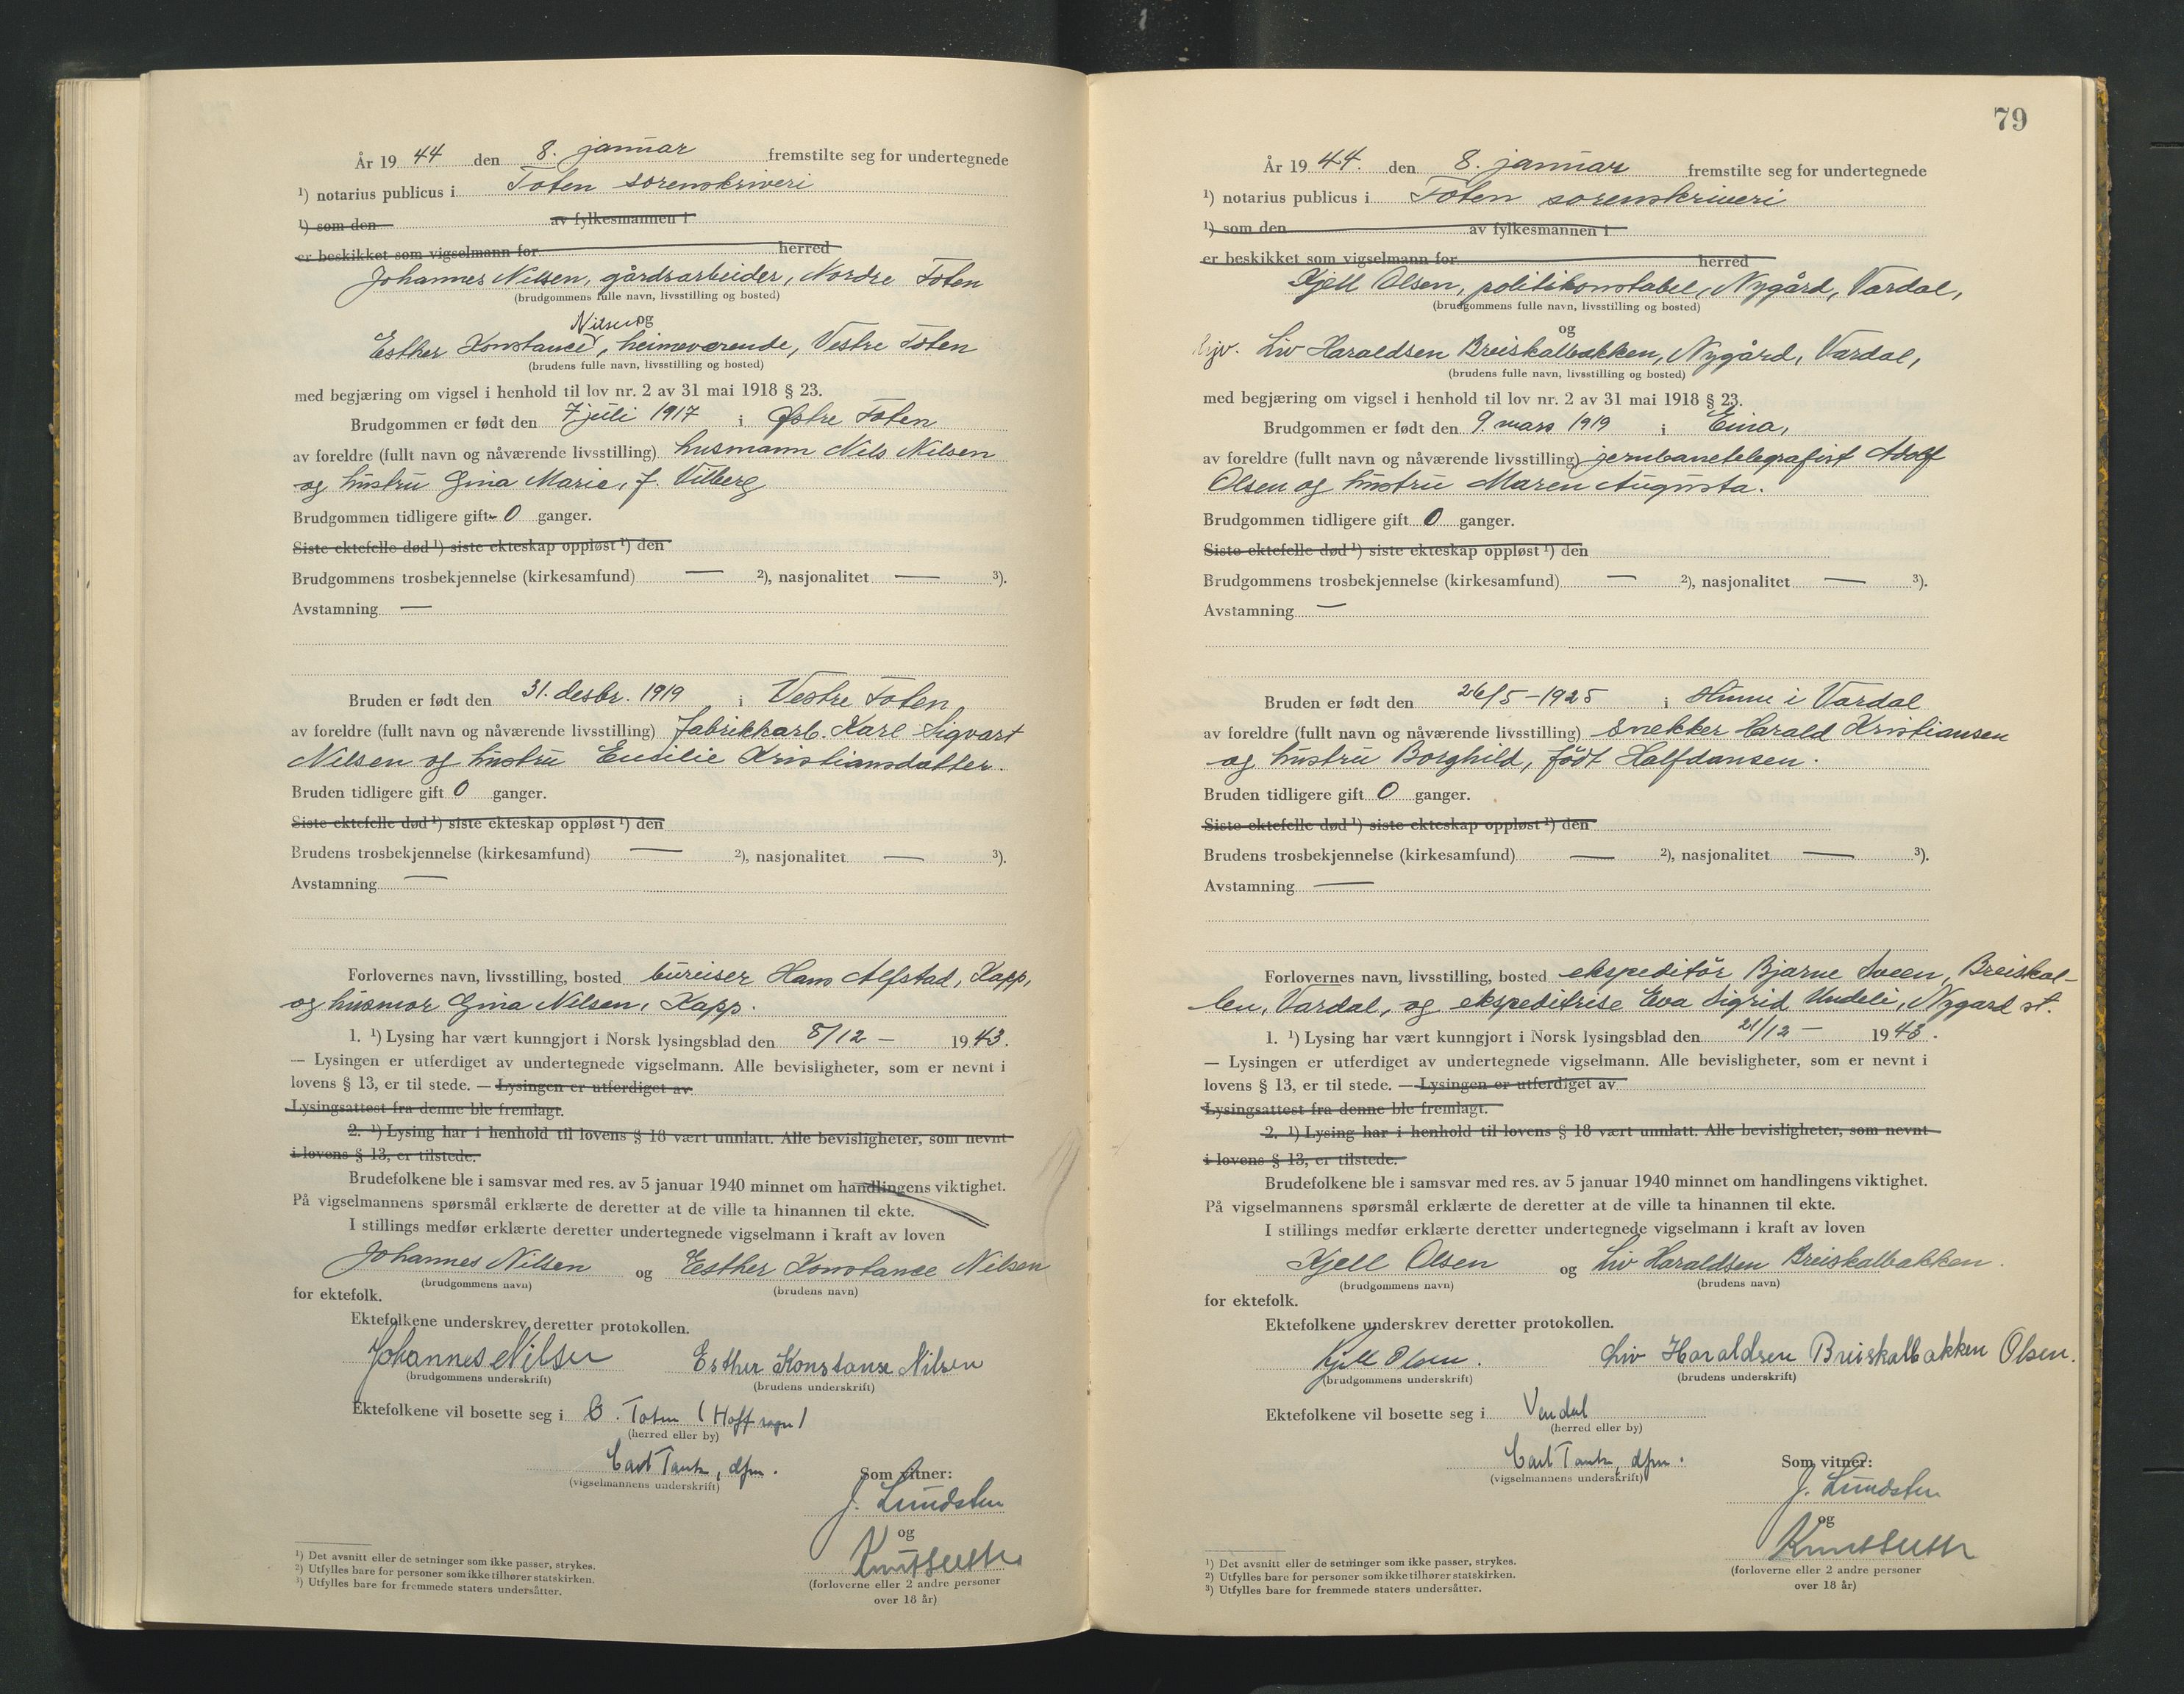 År 19 44 den 8. januar fremstilte seg for undertegnede
¹) notarius publicus i Toten sorenskriveri
¹) som den av fylkesmannen i
er beskikket som vigselmann for herred
Johannes Nilsen, gårdsarbeider, Nordre Toten
(brudgommens fulle navn, livsstilling og bosted)
Nilsen og
Esther Konstance, heimeværende, Vestre Toten
(brudens fulle navn, livsstilling og bosted)
med begjæring om vigsel i henhold til lov nr. 2 av 31 mai 1918 § 23.
Brudgommen er født den 7 juli 1917 i Østre Toten
av foreldre (fullt navn og nåværende livsstilling) husmann Nils Nilsen
og hustru Gina Marie, f. Vilberg
Brudgommen tidligere gift 0 ganger.
Siste ektefelle død ¹) siste ekteskap oppløst ¹) den
Brudgommens trosbekjennelse (kirkesamfund) — ²), nasjonalitet — ³).
Avstamning —
Bruden er født den 31. desbr. 1919 i Vestre Toten
av foreldre (fullt navn og nåværende livsstilling) fabrikkarb. Karl Sigvart
Nilsen og hustru Emilie Kristiansdatter.
Bruden tidligere gift 0 ganger.
Siste ektefelle død ¹) siste ekteskap oppløst ¹) den
Brudens trosbekjennelse (kirkesamfund) — ²), nasjonalitet — ³).
Avstamning —
Forlovernes navn, livsstilling, bosted bureiser Hans Alfstad, Kapp,
og husmor Gina Nilsen, Kapp.
1. ¹) Lysing har vært kunngjort i Norsk lysingsblad den 8/12 — 19 43.
— Lysingen er utferdiget av undertegnede vigselmann. Alle bevisligheter, som er nevnt i
lovens § 13, er til stede. — Lysingen er utferdiget av
Lysingsattest fra denne ble fremlagt.
2. ¹) Lysing har i henhold til lovens § 18 vært unnlatt. Alle bevisligheter, som nevnt
i lovens § 13, er tilstede.
Brudefolkene ble i samsvar med res. av 5 januar 1940 minnet om handlingens viktighet.
På vigselmannens spørsmål erklærte de deretter at de ville ta hinannen til ekte.
I stillings medfør erklærte deretter undertegnede vigselmann i kraft av loven
Johannes Nilsen og Esther Konstance Nilsen
(brudgommens navn) (brudens navn)
for ektefolk.
Ektefolkene underskrev deretter protokollen.
Johannes Nilsen Esther Konstanse Nilsen
(brudgommens underskrift) (brudens underskrift)
Ektefolkene vil bosette seg i Ø. Toten (Hoff sogn)
(herred eller by)
Carl Tank, dfm.
(vigselmannens underskrift)
Som vitner:
J. Lundsten
og
(forloverne eller 2 andre personer
over 18 år)
¹) Det avsnitt eller de setninger som ikke passer, strykes.
²) Utfylles bare for personer som ikke tilhører statskirken.
³) Utfylles bare for fremmede staters undersåtter.
79
År 19 44. den 8. januar fremstilte seg for undertegnede
¹) notarius publicus i Toten sorenskriveri
¹) som den av fylkesmannen i
er beskikket som vigselmann for herred
Kjell Olsen, politikonstabel, Nygård, Vardal,
(brudgommens fulle navn, livsstilling og bosted)
og
Liv Haraldsen Breiskalbakken, Nygård, Vardal,
(brudens fulle navn, livsstilling og bosted)
med begjæring om vigsel i henhold til lov nr. 2 av 31 mai 1918 § 23.
Brudgommen er født den 9. mars 1919 i Eina,
av foreldre (fullt navn og nåværende livsstilling) jernbanetelegrafist Adolf
Olsen og hustru Maren Augusta.
Brudgommen tidligere gift 0 ganger.
Siste ektefelle død ¹) siste ekteskap oppløst ¹) den
Brudgommens trosbekjennelse (kirkesamfund) — ²), nasjonalitet — ³).
Avstamning —
Bruden er født den 26/5 – 1925 i Hunn i Vardal
av foreldre (fullt navn og nåværende livsstilling) snekker Harald Kristiansen
og hustru Borghild, født Halfdansen.
Bruden tidligere gift 0 ganger.
Siste ektefelle død ¹) siste ekteskap oppløst ¹) den
Brudens trosbekjennelse (kirkesamfund) — ²), nasjonalitet — ³).
Avstamning —
Forlovernes navn, livsstilling, bosted ekspeditør Bjarne Sveen, Breiskal-
len, Vardal, og ekspeditrise Eva Sigrid Undeli, Nygard st.
1. ¹) Lysing har vært kunngjort i Norsk lysingsblad den 21/12 — 19 43.
— Lysingen er utferdiget av undertegnede vigselmann. Alle bevisligheter, som er nevnt i
lovens § 13, er til stede. — Lysingen er utferdiget av
Lysingsattest fra denne ble fremlagt.
2. ¹) Lysing har i henhold til lovens § 18 vært unnlatt. Alle bevisligheter, som nevnt
i lovens § 13, er tilstede.
Brudefolkene ble i samsvar med res. av 5 januar 1940 minnet om handlingens viktighet.
På vigselmannens spørsmål erklærte de deretter at de ville ta hinannen til ekte.
I stillings medfør erklærte deretter undertegnede vigselmann i kraft av loven
Kjell Olsen og Liv Haraldsen Breiskalbakken.
(brudgommens navn) (brudens navn)
for ektefolk.
Ektefolkene underskrev deretter protokollen.
Kjell Olsen. Liv Haraldsen Breiskalbakken Olsen.
(brudgommens underskrift) (brudens underskrift)
Ektefolkene vil bosette seg i Vardal
(herred eller by)
Carl Tank, dfm.
(vigselmannens underskrift)
Som vitner:
J. Lundsten
og
(forloverne eller 2 andre personer
over 18 år)
¹) Det avsnitt eller de setninger som ikke passer, strykes.
²) Utfylles bare for personer som ikke tilhører statskirken.
³) Utfylles bare for fremmede staters undersåtter.